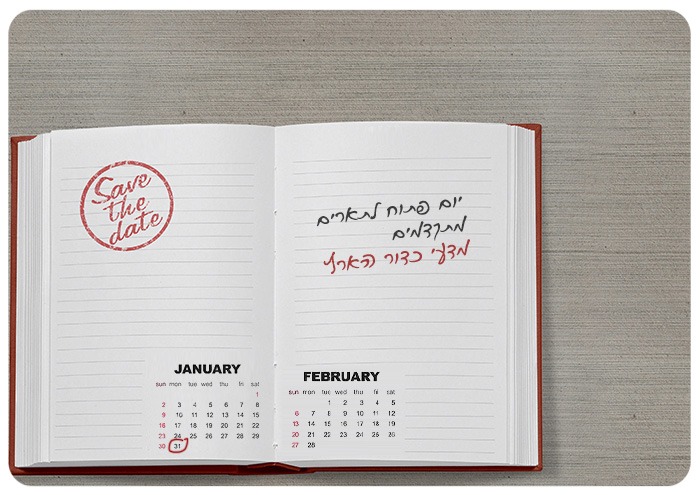 Save
the
date
JANUARY
sun mon tue wed thu fri sat
1
2 3 4 5 6 7 8
9 10 11 12 13 14 15
16 17 18 19 20 21 22
23 24 25 26 27 28 29
30 31
יום פתוח לתארים
מתקדמים
מדעי כדור הארץ
FEBRUARY
sun mon tue wed thu fri sat
1 2 3 4 5
6 7 8 9 10 11 12
13 14 15 16 17 18 19
20 21 22 23 24 25 26
27 28